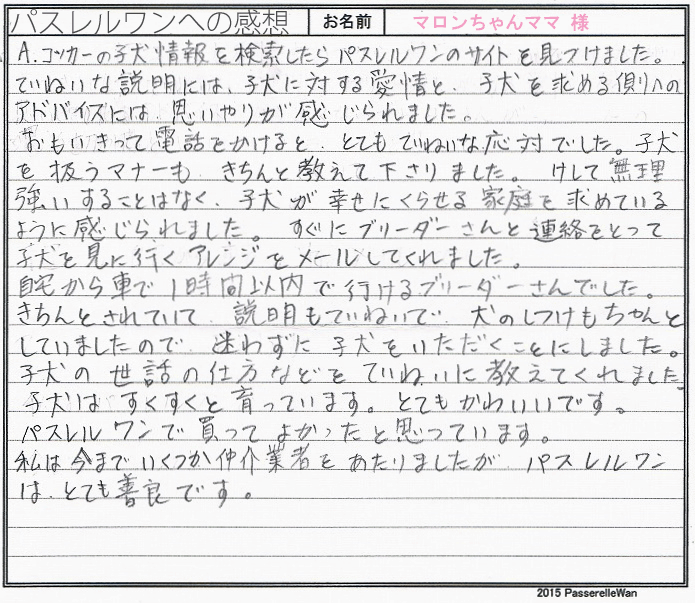 パスレルワンへの感想 お名前 マロンちゃんママ 様
A.コッカーの子犬情報を検索したらパスレルワンのサイトを見つけました。
ていねいな説明には、子犬に対する愛情と、子犬を求める側への
アドバイズには、思いやりが感じられました。
おもいきって電話をかけると、とてもていねいな応対でした。子犬
を扱うマナーも、きちんと教えて下さりました。 けして無理
強いすることはなく、子犬が幸せにくらせる家庭を求めている
ように感じられました。 すぐにブリーダーさんと連絡をとって
子犬を見に行くアレンジをメールしてくれました。
自宅から車で1時間以内で行けるブリーダーさんでした。
きちんとされていて、説明もていねいで、犬のしつけもちゃんと
していましたので、迷わずに子犬をいただくことにしました。
子犬の世話の仕方などをていねいに教えてくれました。
子犬はすくすくと育っています。とてもかわいいです。
パスレルワンで買ってよかったと思っています。
私は今までいくつか仲介業者をあたりましたが、パスレルワン
は、とても善良です。
2015 PasserelleWan